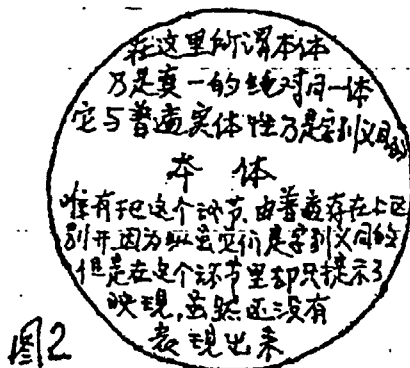 在这里所谓本体
乃是真一的绝对同一体
它与普遍实体性乃是字别义同的
本 体
惟有把这个环节,由普遍存在上区
别开,因为纵虽它们是字别义同的
但是在这个环节里却只提示了
映现,虽然还没有
表现出来
图2